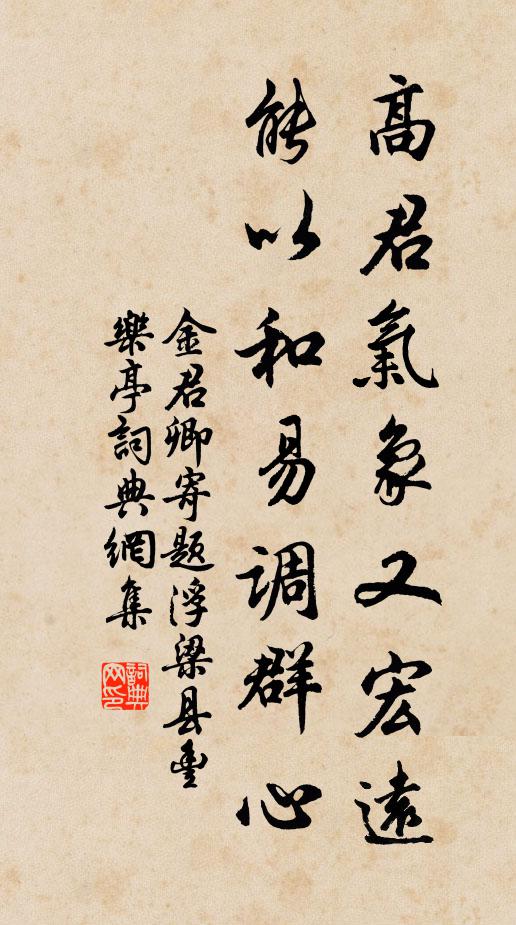 高君氣象又宏遠
能以和易調群心
金君卿寄题浮梁县豐
樂亭詞典網集
詞典網印